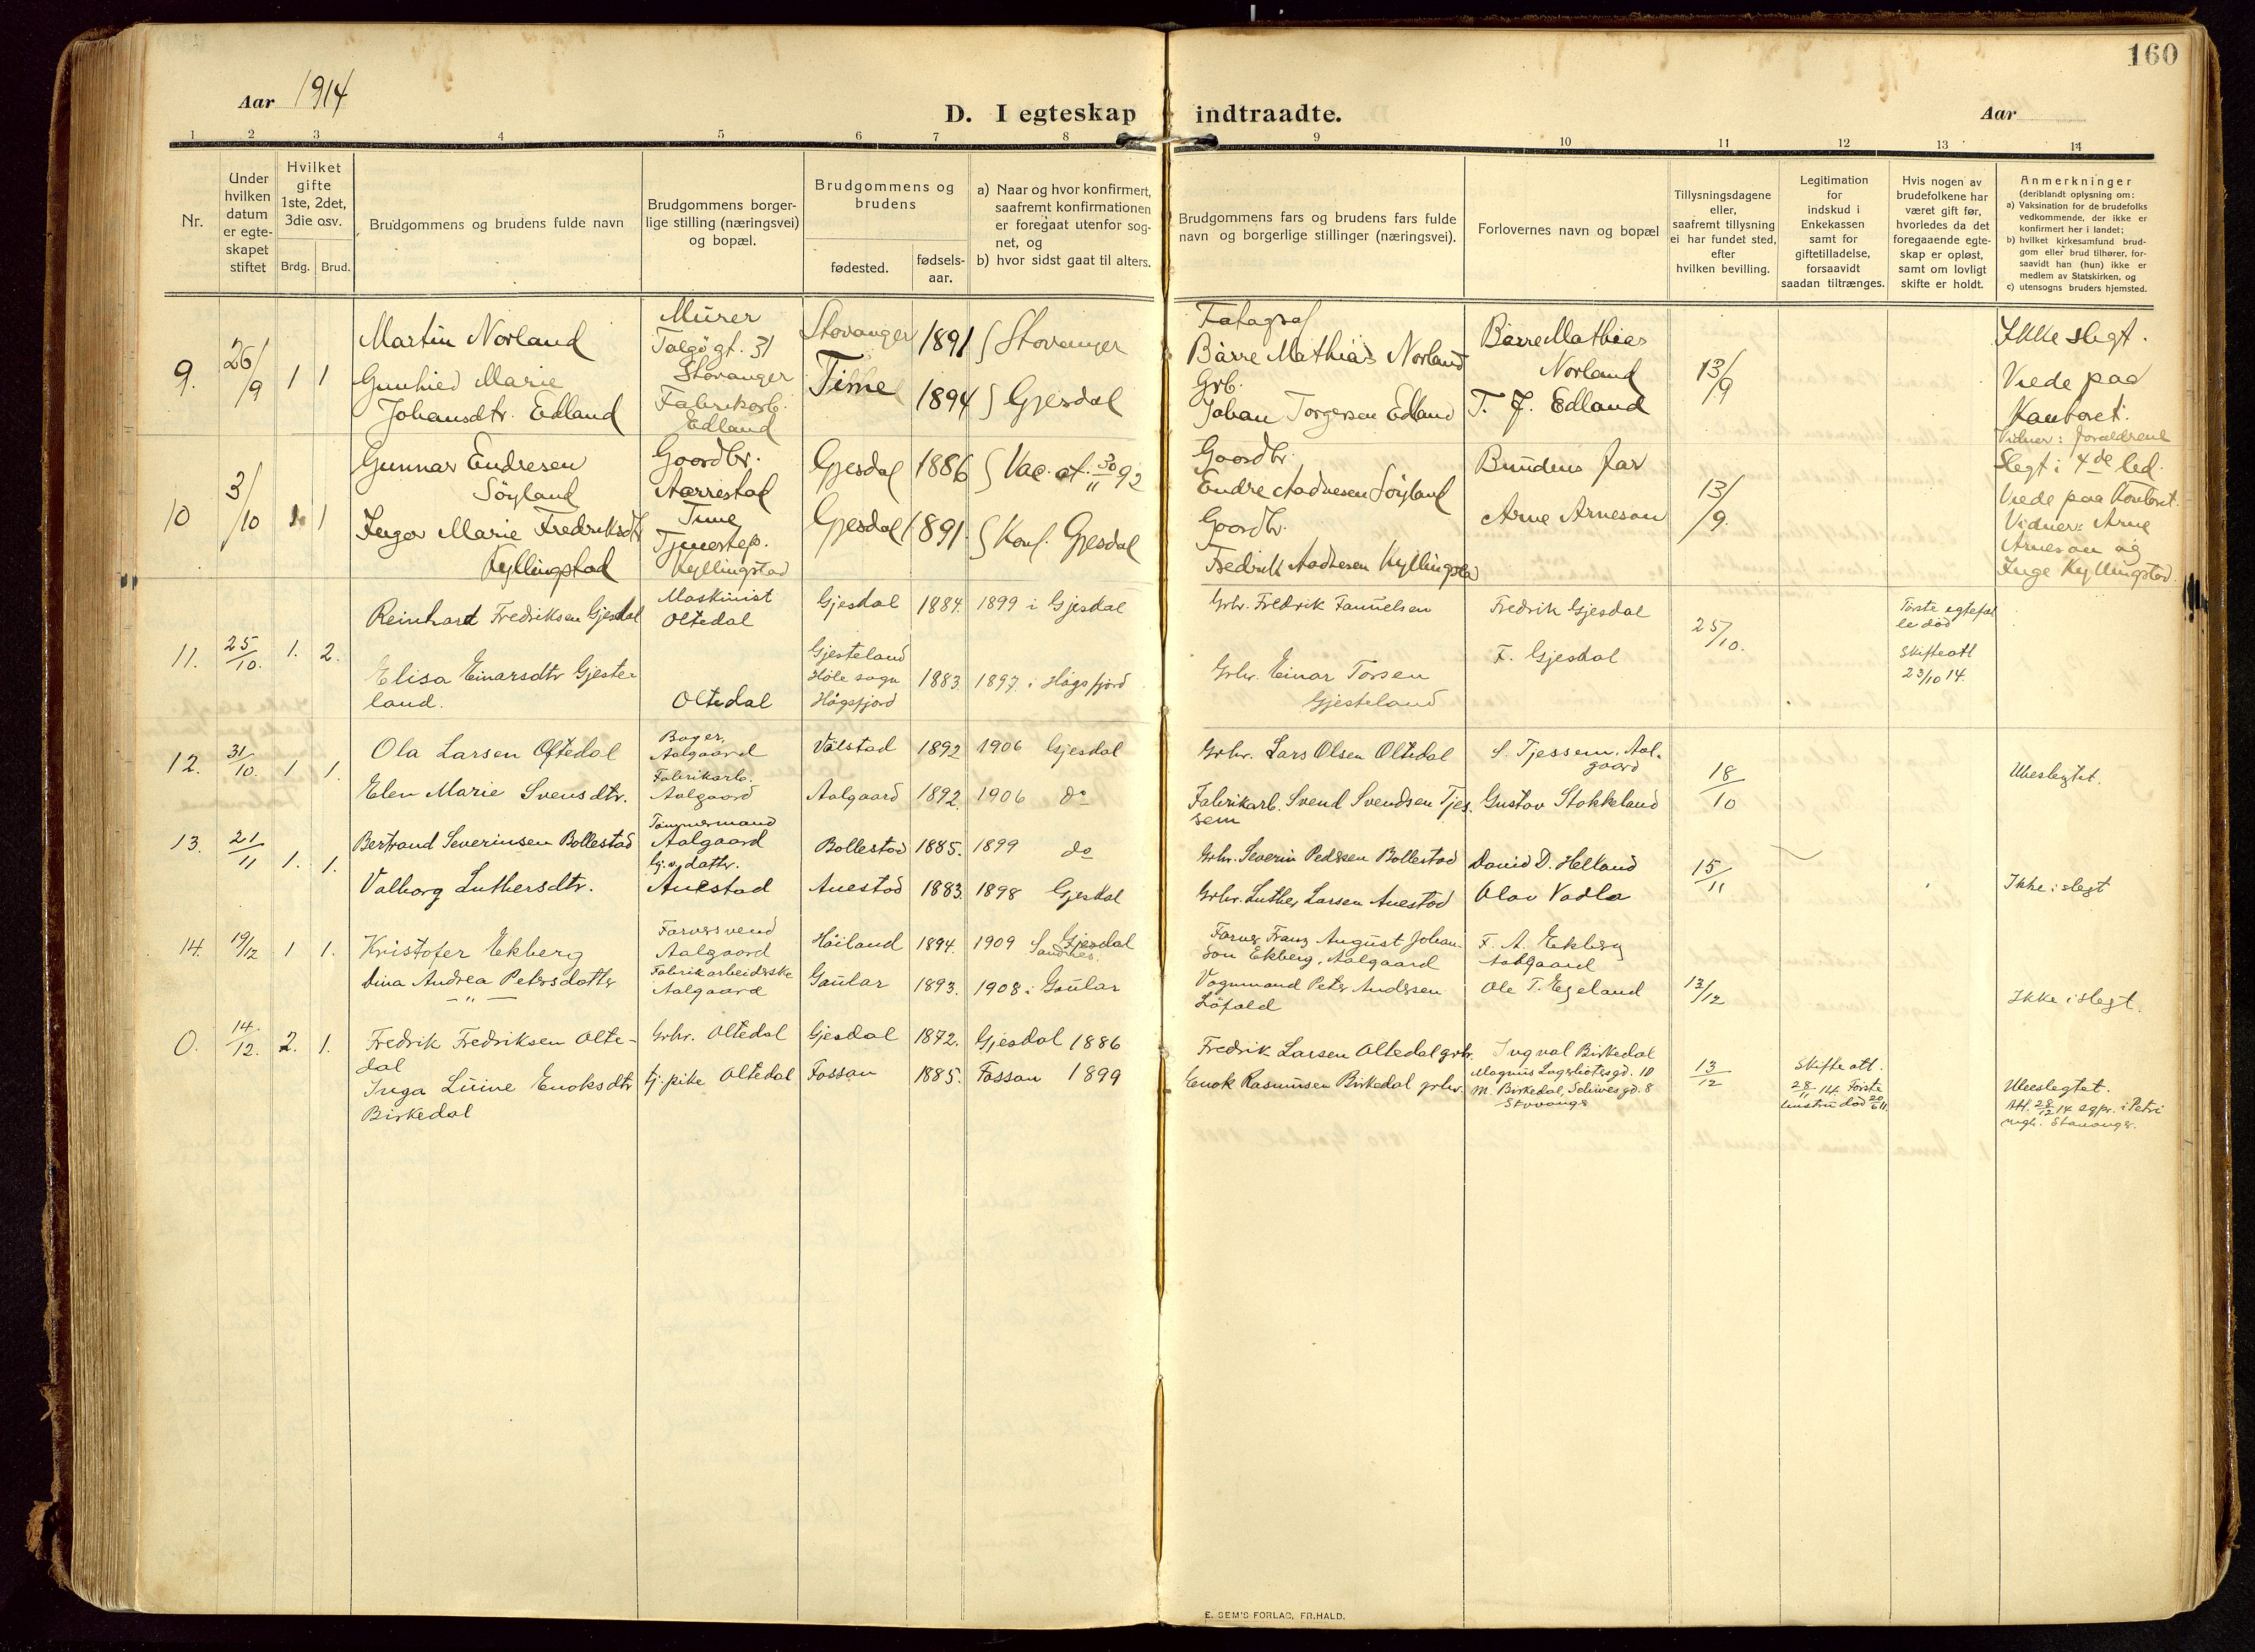 160
Aar 1914
D. I egteskap indtraadte.
Aar
1 2 3 4 5 6 7 8 9 10 11 12 13 14
Nr.
Under
hvilken
datum
er egte-
skapet
stiftet
Hvilket
gifte
1ste, 2det,
3die osv.
Brdg. Brud.
Brudgommens og brudens fulde navn
Brudgommens borger-
lige stilling (næringsvei)
og bopæl.
Brudgommens og
brudens
fødested.
fødsels-
aar.
a) Naar og hvor konfirmert,
saafremt konfirmationen
er foregaat utenfor sog-
net, og
b) hvor sidst gaat til alters.
Brudgommens fars og brudens fars fulde
navn og borgerlige stillinger (næringsvei).
Forlovernes navn og bopæl
Tillysningsdagene
eller,
saafremt tillysning
ei har fundet sted,
efter
hvilken bevilling.
Legitimation
for
indskud i
Enkekassen
samt for
giftetilladelse,
forsaavidt
saadan tiltrænges.
Hvis nogen av
brudefolkene har
været gift før,
hvorledes da det
foregaaende egte-
skap er opløst,
samt om lovligt
skifte er holdt.
Anmerkninger
(deriblandt oplysning om:
a) Vaksination for de brudefolks
vedkommende, der ikke er
konfirmert her i landet;
b) hvilket kirkesamfund brud-
gom eller brud tilhører, for-
saavidt han (hun) ikke er
medlem av Statskirken, og
c) utensogns bruders hjemsted.
9. 26/9 1 1
Martin Norland
Gunhild Marie
Johansdtr. Edland
Murer
Talgøgt. 31
Stavanger
Fabrikarb.
Edland
Stavanger 1891 Stavanger
Time 1894 Gjesdal
Fotograf
Børre Mathias Norland
Grb.
Johan Torgersen Edland
Børre Mathias
Norland
T. J. Edland
13/9
Ikke slegt.
Viede paa
Kontoret.
Vidner: Foreldrene
10 3/10 1 1
Gunnar Endresen
Søyland
Inga Marie Fredriksdtr
Kyllingstad
Gaardbr.
Aarrestad
Time
Tjenestep.
Kyllingstad
Gjesdal 1886 Vac. at. 30/11 92
Gjesdal 1891. Konf. Gjesdal
Gaardbr.
Endre Aadnesen Søyland
Gaardbr.
Fredrik Aadnesen Kyllingstad
Brudens far
Arne Arneson
13/9.
Slegt i 4de led.
Viede paa Kontoret.
Vidner: Arne
Arneson og
Inge Kyllingstad.
11. 25/10. 1. 2.
Reinhard Fredriksen Gjesdal
Elisa Einarsdtr Gjeste-
land.
Maskinist
Oltedal
Oltedal
Gjesdal 1884. 1899 i Gjesdal
Gjesteland
Høle sogn
Høgsfjord
1883 1897 i Høgsfjord
Grbr. Fredrik
Grbr. Einar Torsen
Gjesteland
Fredrik Gjesdal
F. Gjesdal
25/10.
Første egtefæl
le død
Skifteatt
23/10 14.
12. 31/10. 1 1.
Ola Larsen Oftedal
Elen Marie Svensdtr.
Bager,
Aalgaard
Fabrikarb.
Aalgaard
Vølstad 1892 1906 Gjesdal
Aalgaard 1892. 1906 do
Grbr. Lars Olsen Oltedal
Fabrikarb. Svend Svendsen Tjes-
sem
S. Tjessem, Aal-
gaard
Gustav Stokkeland
18/10
Ubeslegtet.
13. 21/11 1. 1.
Bertrand Severinsen Bollestad
Valborg Luthersdtr.
Tømmermand
Aalgaard
Gj.v. dattr.
Auestad
Bollestad 1885. 1899 do
Auestad 1883. 1898 Gjesdal
Grbr. Severin Pedersen Bollestad
Grbr. Luther Larsen Auestad
David D. Helland
Olav Vadla
15/11
Ikke i slegt
14. 19/12 1 1.
Kristofer Ekberg
Dina Andrea Petersdatter
— " —
Farversvend
Aalgaard
Fabrikarbeiderske
Aalgaard
Høiland 1894. 1909 Gjesdal
Sandnes.
Gaular 1893. 1908 i Gaular
Farver Franz August Johan-
son Ekberg, Aalgaard
Vognmand Peter Andersen
Løfald
F. A. Ekberg
Aalgaard
Ole T. Egeland
13/12
Ikke i slegt.
0. 14/12. 2. 1.
Fredrik Fredriksen Olte-
dal
Inga Luise Enoksdtr
Birkedal
Grbr. Oltedal
tj.pike Oltedal
Gjesdal 1872. Gjesdal 1886
Fossan 1885. Fossan 1899
Fredrik Larsen Oltedal grbr.
Enok Rasmusen Birkedal grbr.
Ingval Birkedal
Magnus Lagabøtersgd. 10
M. Birkedal,
Stavanger
13/12
Skifte att.
28/11 14. Første
hustru død 20/6 11.
Ubeslegtet.
Att. 28/12 14 egpr. i Petri
mgh. Stavanger.
E. SEM'S FORLAG, FR.HALD.